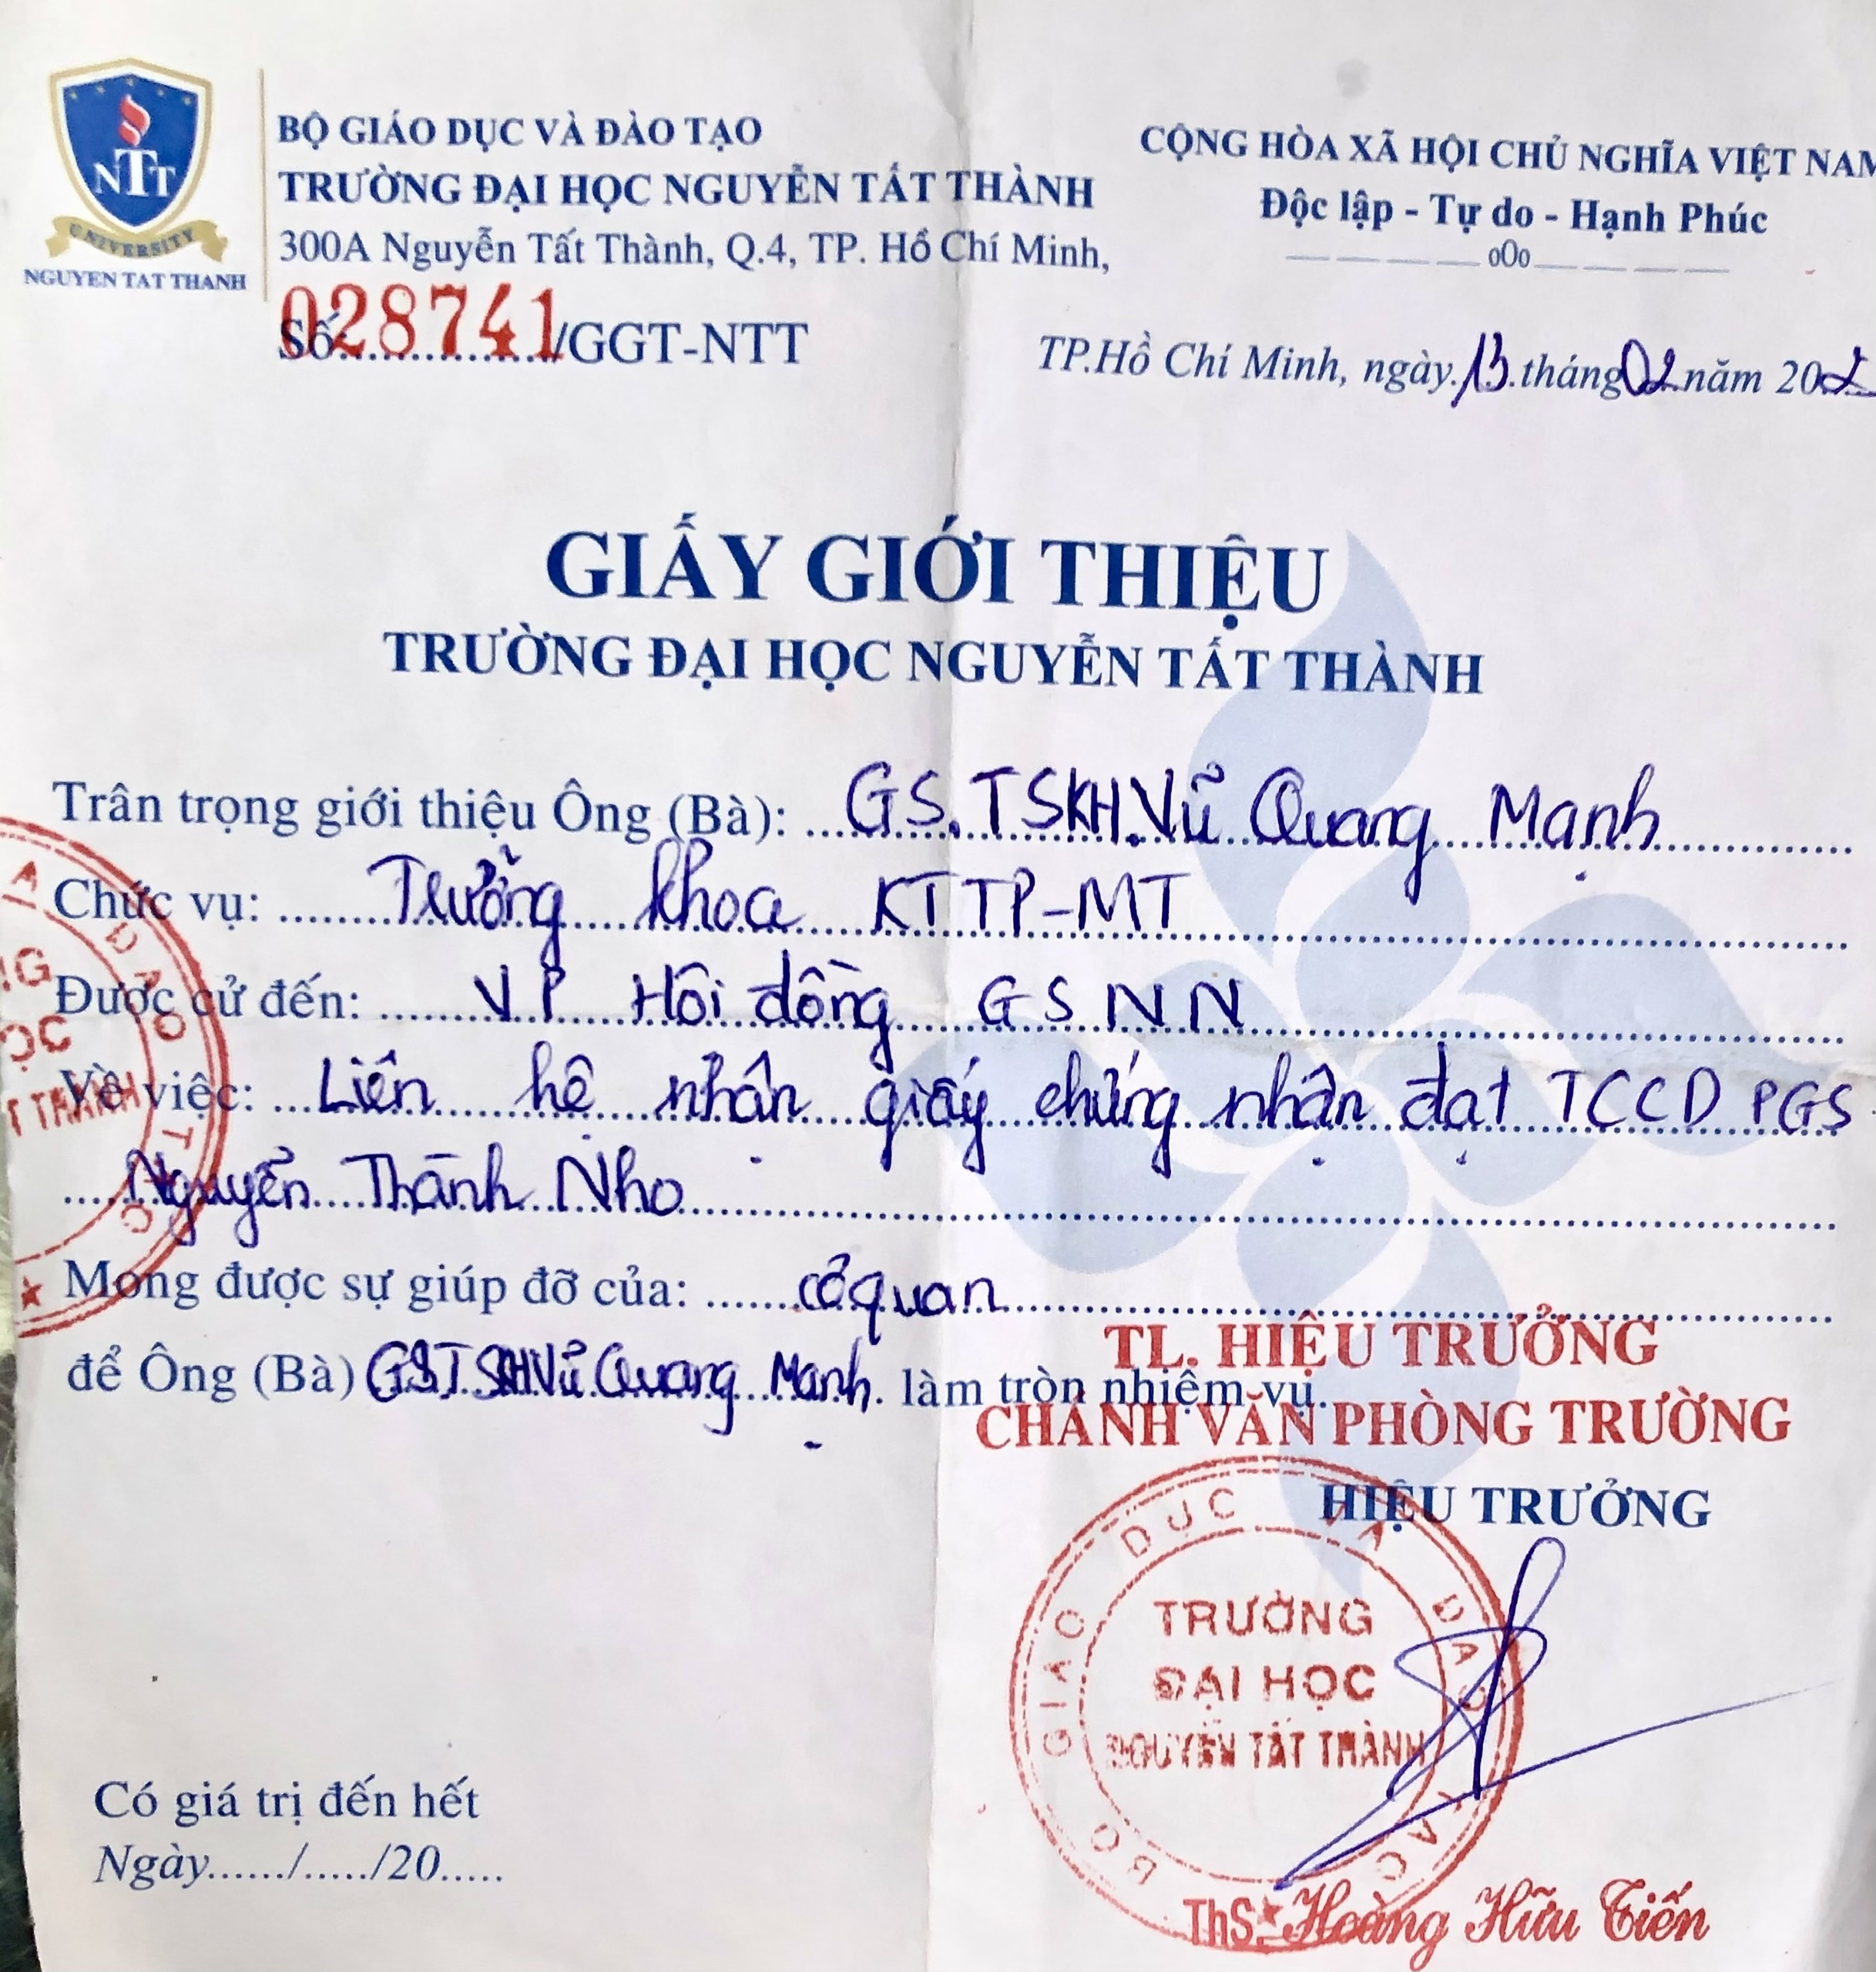 BỘ GIÁO DỤC VÀ ĐÀO TẠO
TRƯỜNG ĐẠI HỌC NGUYỄN TẤT THÀNH
300A Nguyễn Tất Thành, Q.4, TP. Hồ Chí Minh,
NTT
UNIVERSITY
NGUYEN TAT THANH
Số:028741/GGT-NTT
CỘNG HÒA XÃ HỘI CHỦ NGHĨA VIỆT NAM
Độc lập - Tự do - Hạnh Phúc
oOo
TP.Hồ Chí Minh, ngày 13 tháng 02 năm 202
GIẤY GIỚI THIỆU
TRƯỜNG ĐẠI HỌC NGUYỄN TẤT THÀNH
Trân trọng giới thiệu Ông (Bà): GS.TSKH.Vũ Quang Mạnh
Chức vụ: Trưởng khoa KTTP-MT
Được cử đến: VP Hội đồng GSNN
Về việc: Liên hệ nhận giấy chứng nhận đạt TCCD PGS
Nguyễn Thành Nho
Mong được sự giúp đỡ của: cơ quan
để Ông (Bà) GSTSKH Vũ Quang Mạnh. làm tròn nhiệm vụ.
TL. HIỆU TRƯỞNG
CHÁNH VĂN PHÒNG TRƯỜNG
HIỆU TRƯỞNG
BỘ GIÁO DỤC VÀ ĐÀO TẠO
TRƯỜNG
ĐẠI HỌC
NGUYỄN TẤT THÀNH
ThS. Hoàng Hữu Tiến
Có giá trị đến hết
Ngày....../...../20.....